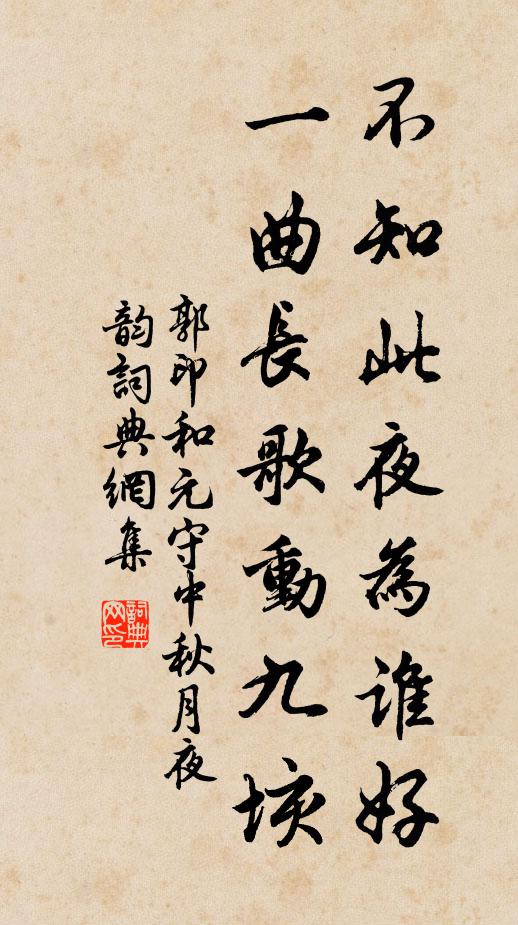 不知此夜為誰好
一曲長歌動九垓
郭印和元守中秋月夜
韵詞典網集
詞典
网印